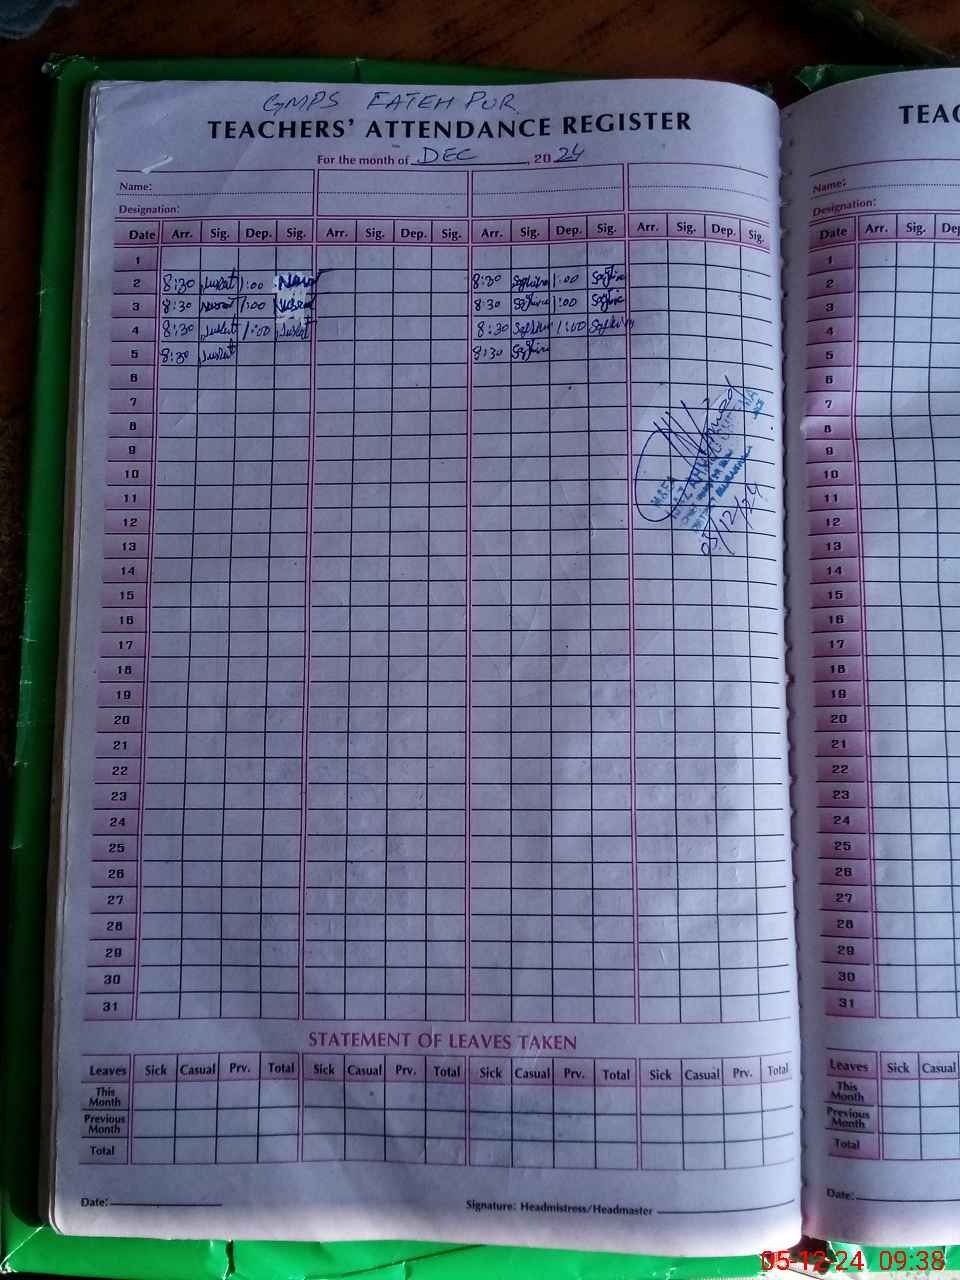 GMPS FATEH PUR
TEACHERS' ATTENDANCE REGISTER
For the month of DEC, 2024
Name:
Designation:
Date Arr. Sig. Dep. Sig. Arr. Sig. Dep. Sig. Arr. Sig. Dep. Sig. Arr. Sig. Dep. Sig.
1
2 8:30 1:00 8:30 1:00
3 8:30 1:00 8:30 1:00
4 8:30 1:00 8:30 1:00
5 8:30 8:30
6
7
8
9
10
11
12
13
14
15
16
17
18
19
20
21
22
23
24
25
26
27
28
29
30
31
05/12/24
STATEMENT OF LEAVES TAKEN
Leaves Sick Casual Prv. Total Sick Casual Prv. Total Sick Casual Prv. Total Sick Casual Prv. Total
This
Month
Previous
Month
Total
Date:
Signature: Headmistress/Headmaster
TEAC
Name:
Designation:
Date Arr. Sig. Dep
1
2
3
4
5
6
7
8
9
10
11
12
13
14
15
16
17
18
19
20
21
22
23
24
25
26
27
28
29
30
31
Leaves Sick Casual
This
Month
Previous
Month
Total
Date:
05-12-24 09:38